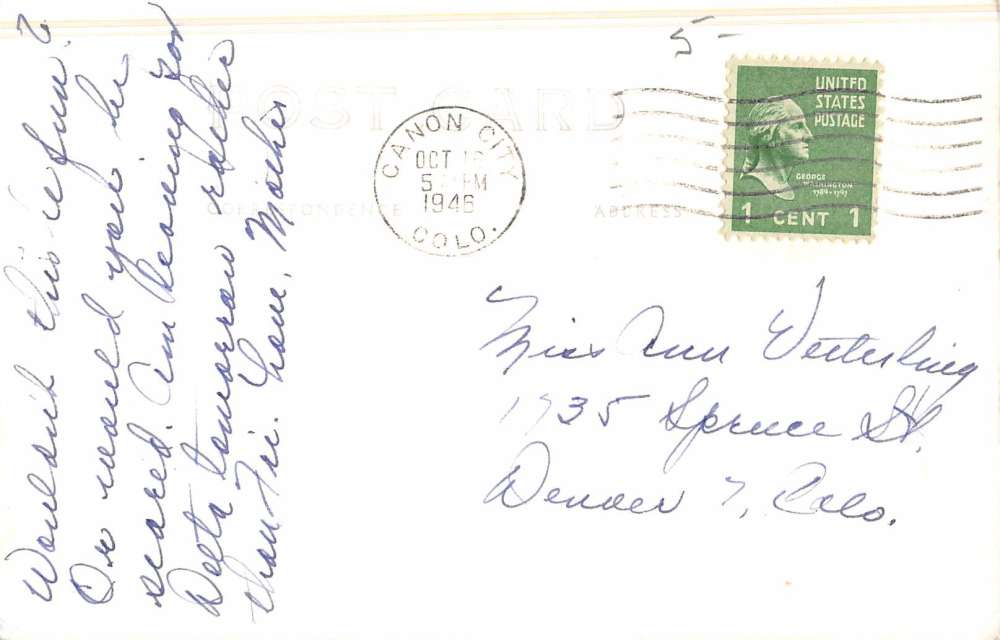 Wouldn't this be fun?
Or would you be
scared. Am leaving for
Delta tomorrow rather
than Fri. Love, Mother
5-
POST CARD
CORRESPONDENCE
ADDRESS
CANON CITY
OCT 16
5 PM
1946
COLO.
UNITED
STATES
POSTAGE
GEORGE
WASHINGTON
1789-1797
1 CENT 1
Miss Ann Vetterling
1735 Spruce St.
Denver 7, Colo.